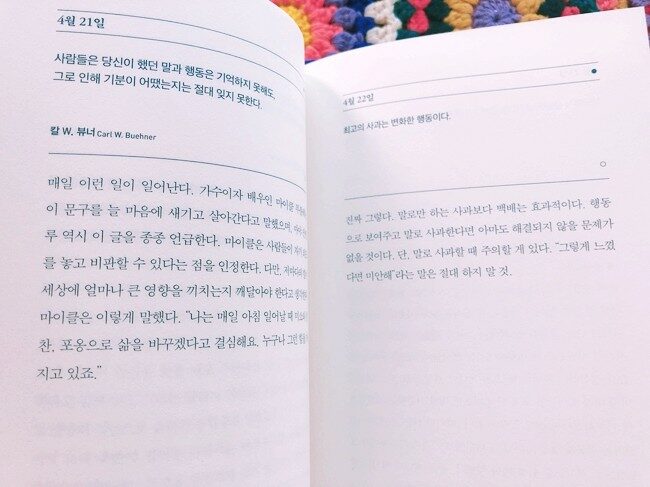 4월 21일
사람들은 당신이 했던 말과 행동은 기억하지 못해도,
그로 인해 기분이 어땠는지는 절대 잊지 못한다.
칼 W. 뷰너 Carl W. Buehner
매일 이런 일이 일어난다. 가수이자 배우인 마이클
이 문구를 늘 마음에 새기고 살아간다고 말했으며,
루 역시 이 글을 종종 언급한다. 마이클은 사람들이
를 놓고 비판할 수 있다는 점을 인정한다. 다만,
세상에 얼마나 큰 영향을 끼치는지 깨달아야 한다고
마이클은 이렇게 말했다. “나는 매일 아침 일어날 때
찬, 포옹으로 삶을 바꾸겠다고 결심해요. 누구나 그런
지고 있죠.”
4월 22일
최고의 사과는 변화한 행동이다.
진짜 그렇다. 말로만 하는 사과보다 백배는 효과적이다. 행동
으로 보여주고 말로 사과한다면 아마도 해결되지 않을 문제가
없을 것이다. 단, 말로 사과할 때 주의할 게 있다. “그렇게 느꼈
다면 미안해”라는 말은 절대 하지 말 것.